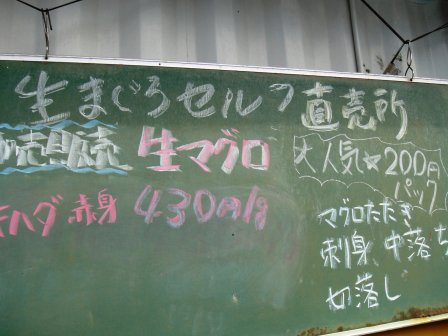 生まぐろセルフ直売所
卸売販売 生マグロ
キハダ 赤身 430円/g
大人気★200円
パック
マグロたたき
刺身、中落ち
切落し